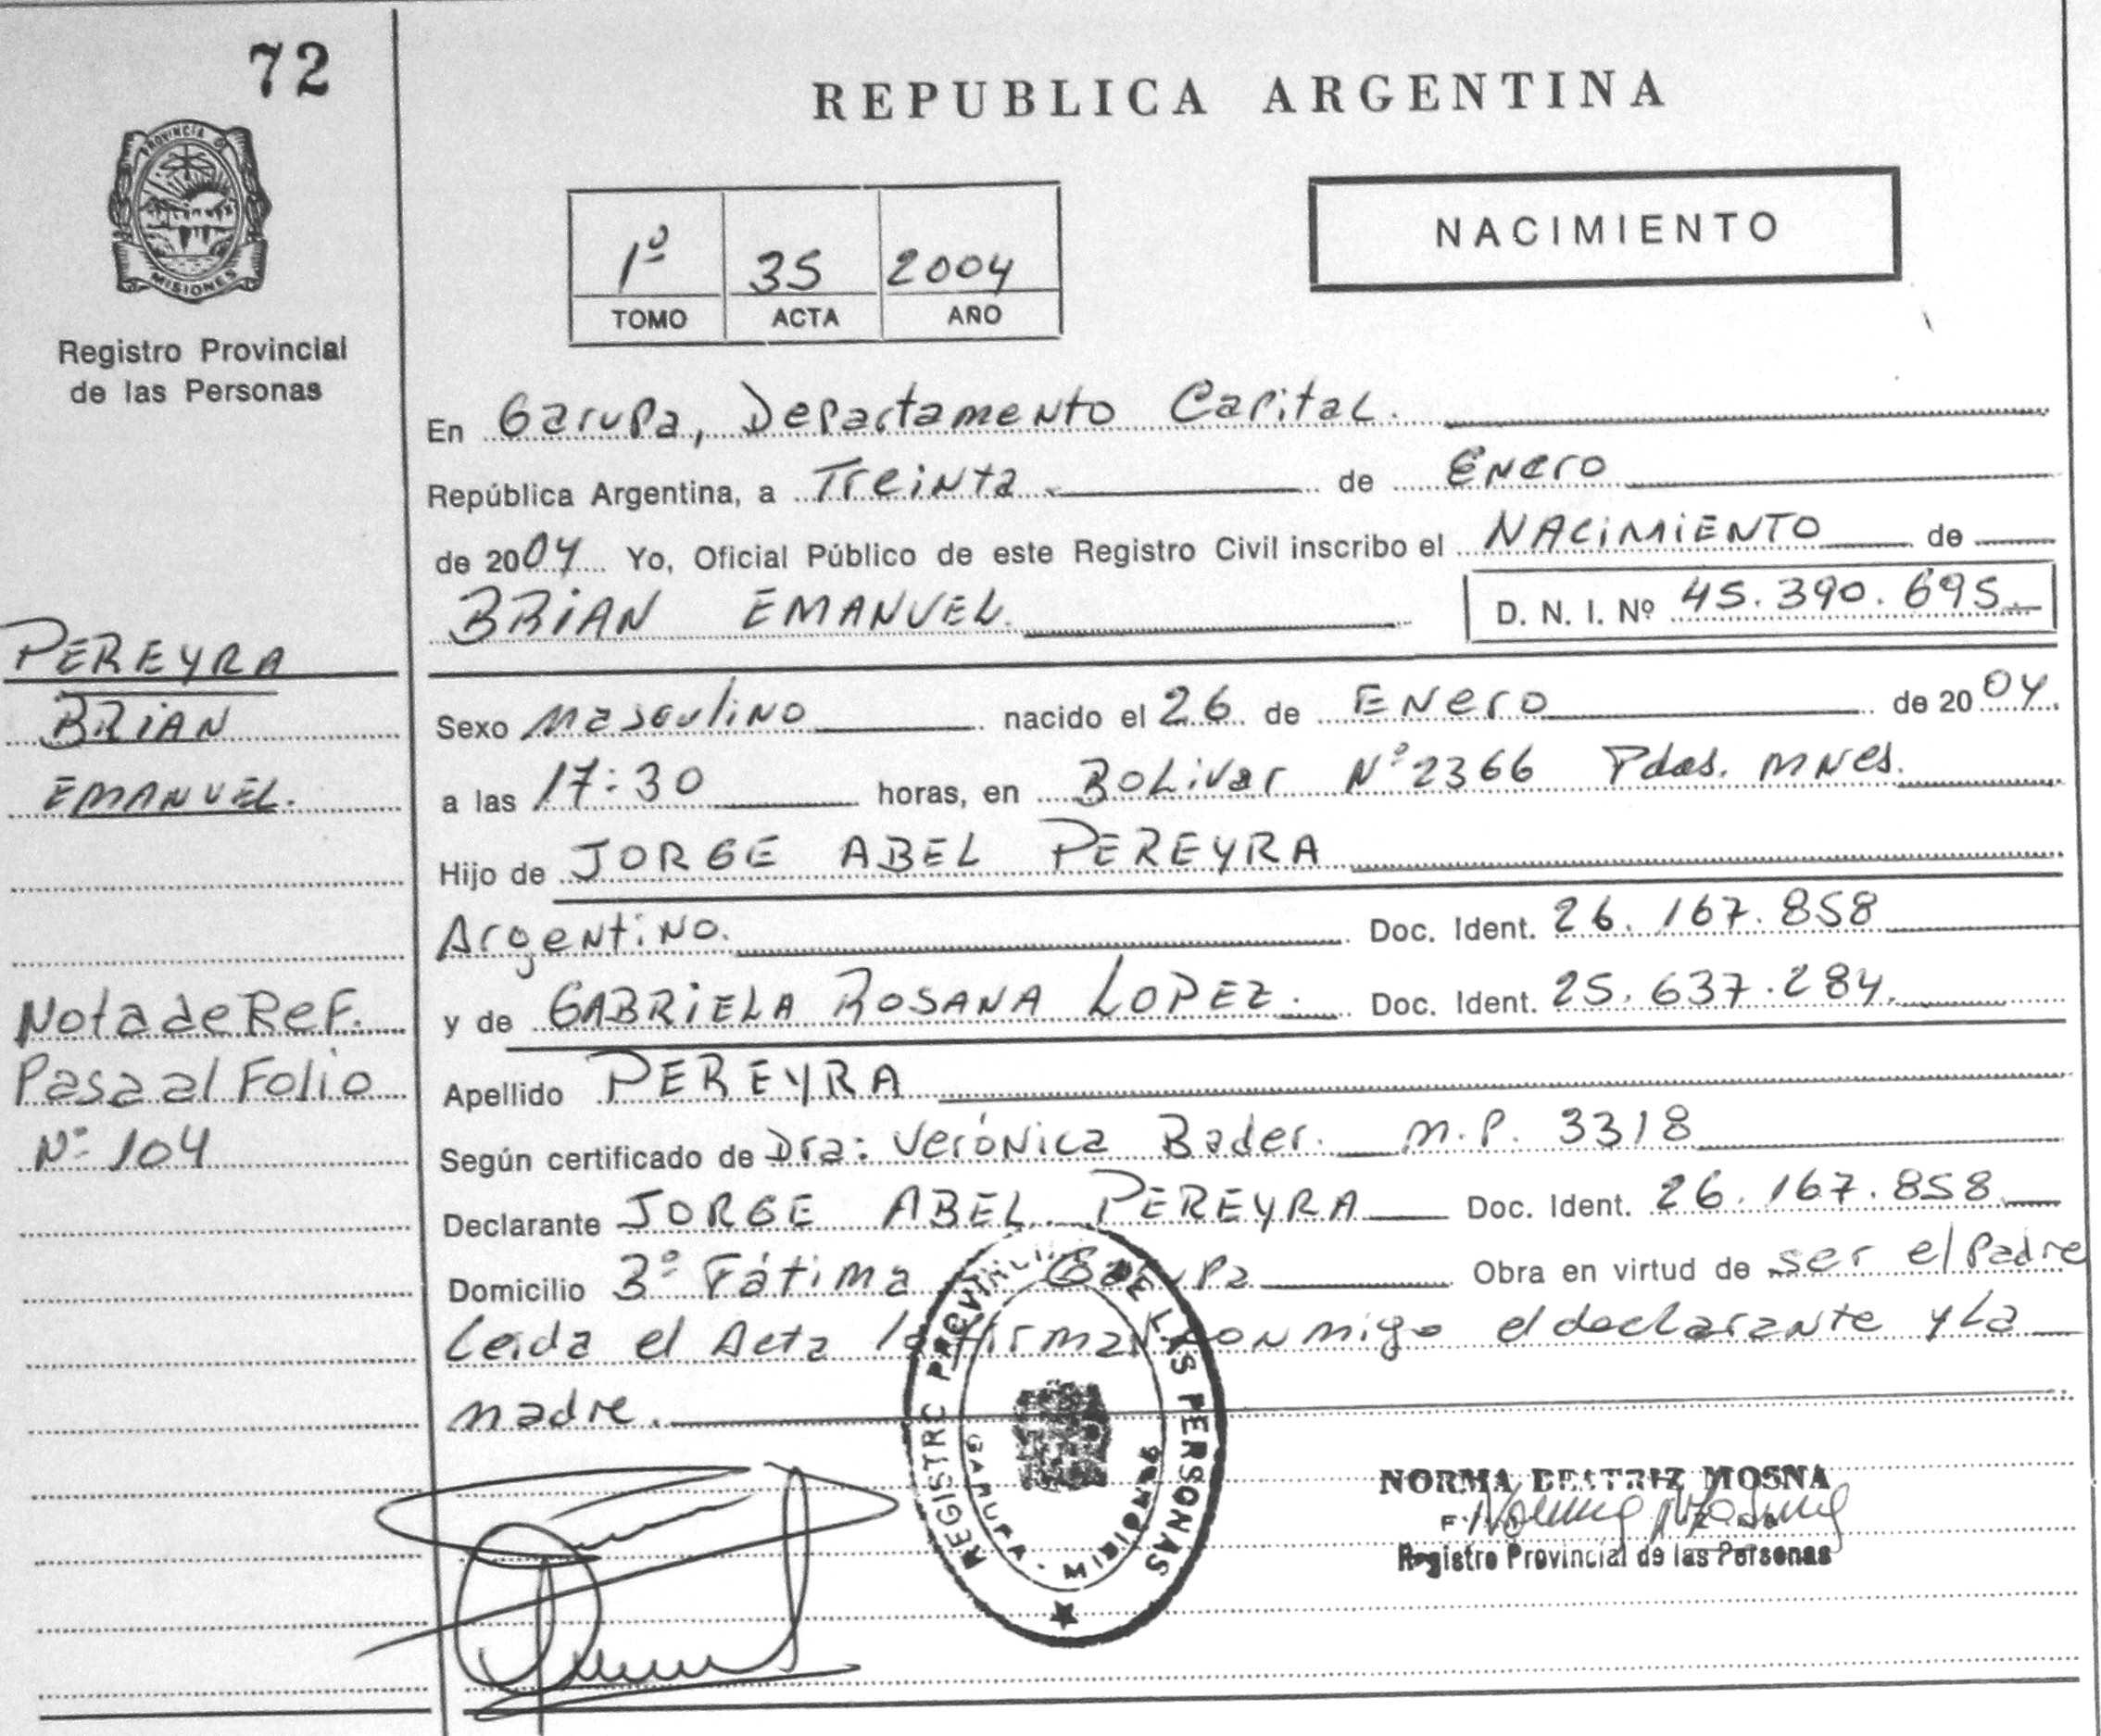 72
REPUBLICA ARGENTINA
PROVINCIA DE
MISIONES
Registro Provincial
de las Personas
1º 35 2004
TOMO ACTA AÑO
NACIMIENTO
En Garupa, Departamento Capital.
República Argentina, a Treinta de Enero
de 2004 Yo, Oficial Público de este Registro Civil inscribo el NACIMIENTO de
BRIAN EMANUEL. D. N. I. Nº 45.390.695
PEREYRA
BRIAN
EMANUEL.
Sexo masculino nacido el 26 de Enero de 2004.
a las 17:30 horas, en Bolivar Nº 2366 Pdas. mnes.
Hijo de JORGE ABEL PEREYRA
Argentino. Doc. Ident. 26.167.858
y de GABRIELA ROSANA LOPEZ. Doc. Ident. 25.637.284.
Nota de Ref.
Pasa al Folio
Nº 104
Apellido PEREYRA
Según certificado de Dra: Verónica Bader. M.P. 3318
Declarante JORGE ABEL PEREYRA Doc. Ident. 26.167.858
Domicilio Bº Fátima Garupa Obra en virtud de ser el Padre
Leida el Acta la firman conmigo el declarante y La
madre.
REGISTRO PROVINCIAL DE LAS PERSONAS
GARUPA - MISIONES
NORMA BEATRIZ MOSNA
Registro Provincial de las Personas